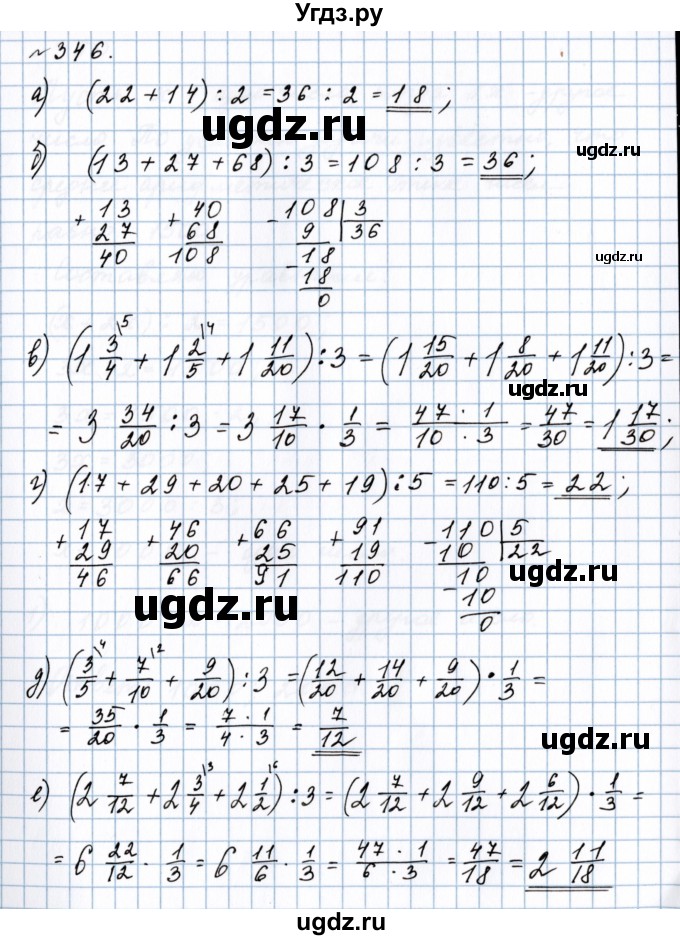 Угдз.ру
№346.
а) (22+14):2=36:2=18;
ugdz.ru
ugdz.ru
б) (13+27+68):3=108:3=36;
+13 +40 -108|3
27 68 9 36
40 108 18
-18
0
ugdz.ru
в) (1 3/4\5 + 1 2/5\4 + 1 11/20):3=(1 15/20+1 8/20+1 11/20):3=
ugdz.ru
=3 34/20:3=3 17/10·1/3=47·1/10·3=47/30=1 17/30;
г) (17+29+20+25+19):5=110:5=22;
+17 +46 +66 +91 -110|5
29 20 25 19 10 22
46 66 91 110 10
-10
0
ugdz.ru
ugdz.ru
д) (3/5\4+7/10\2+9/20):3=(12/20+14/20+9/20)·1/3=
=35/20·1/3=7·1/4·3=7/12
ugdz.ru
е) (2 7/12+2 3/4\3+2 1/2\6):3=(2 7/12+2 9/12+2 6/12)·1/3=
=6 22/12·1/3=6 11/6·1/3=47·1/6·3=47/18=2 11/18
ugdz.ru
ugdz.ru